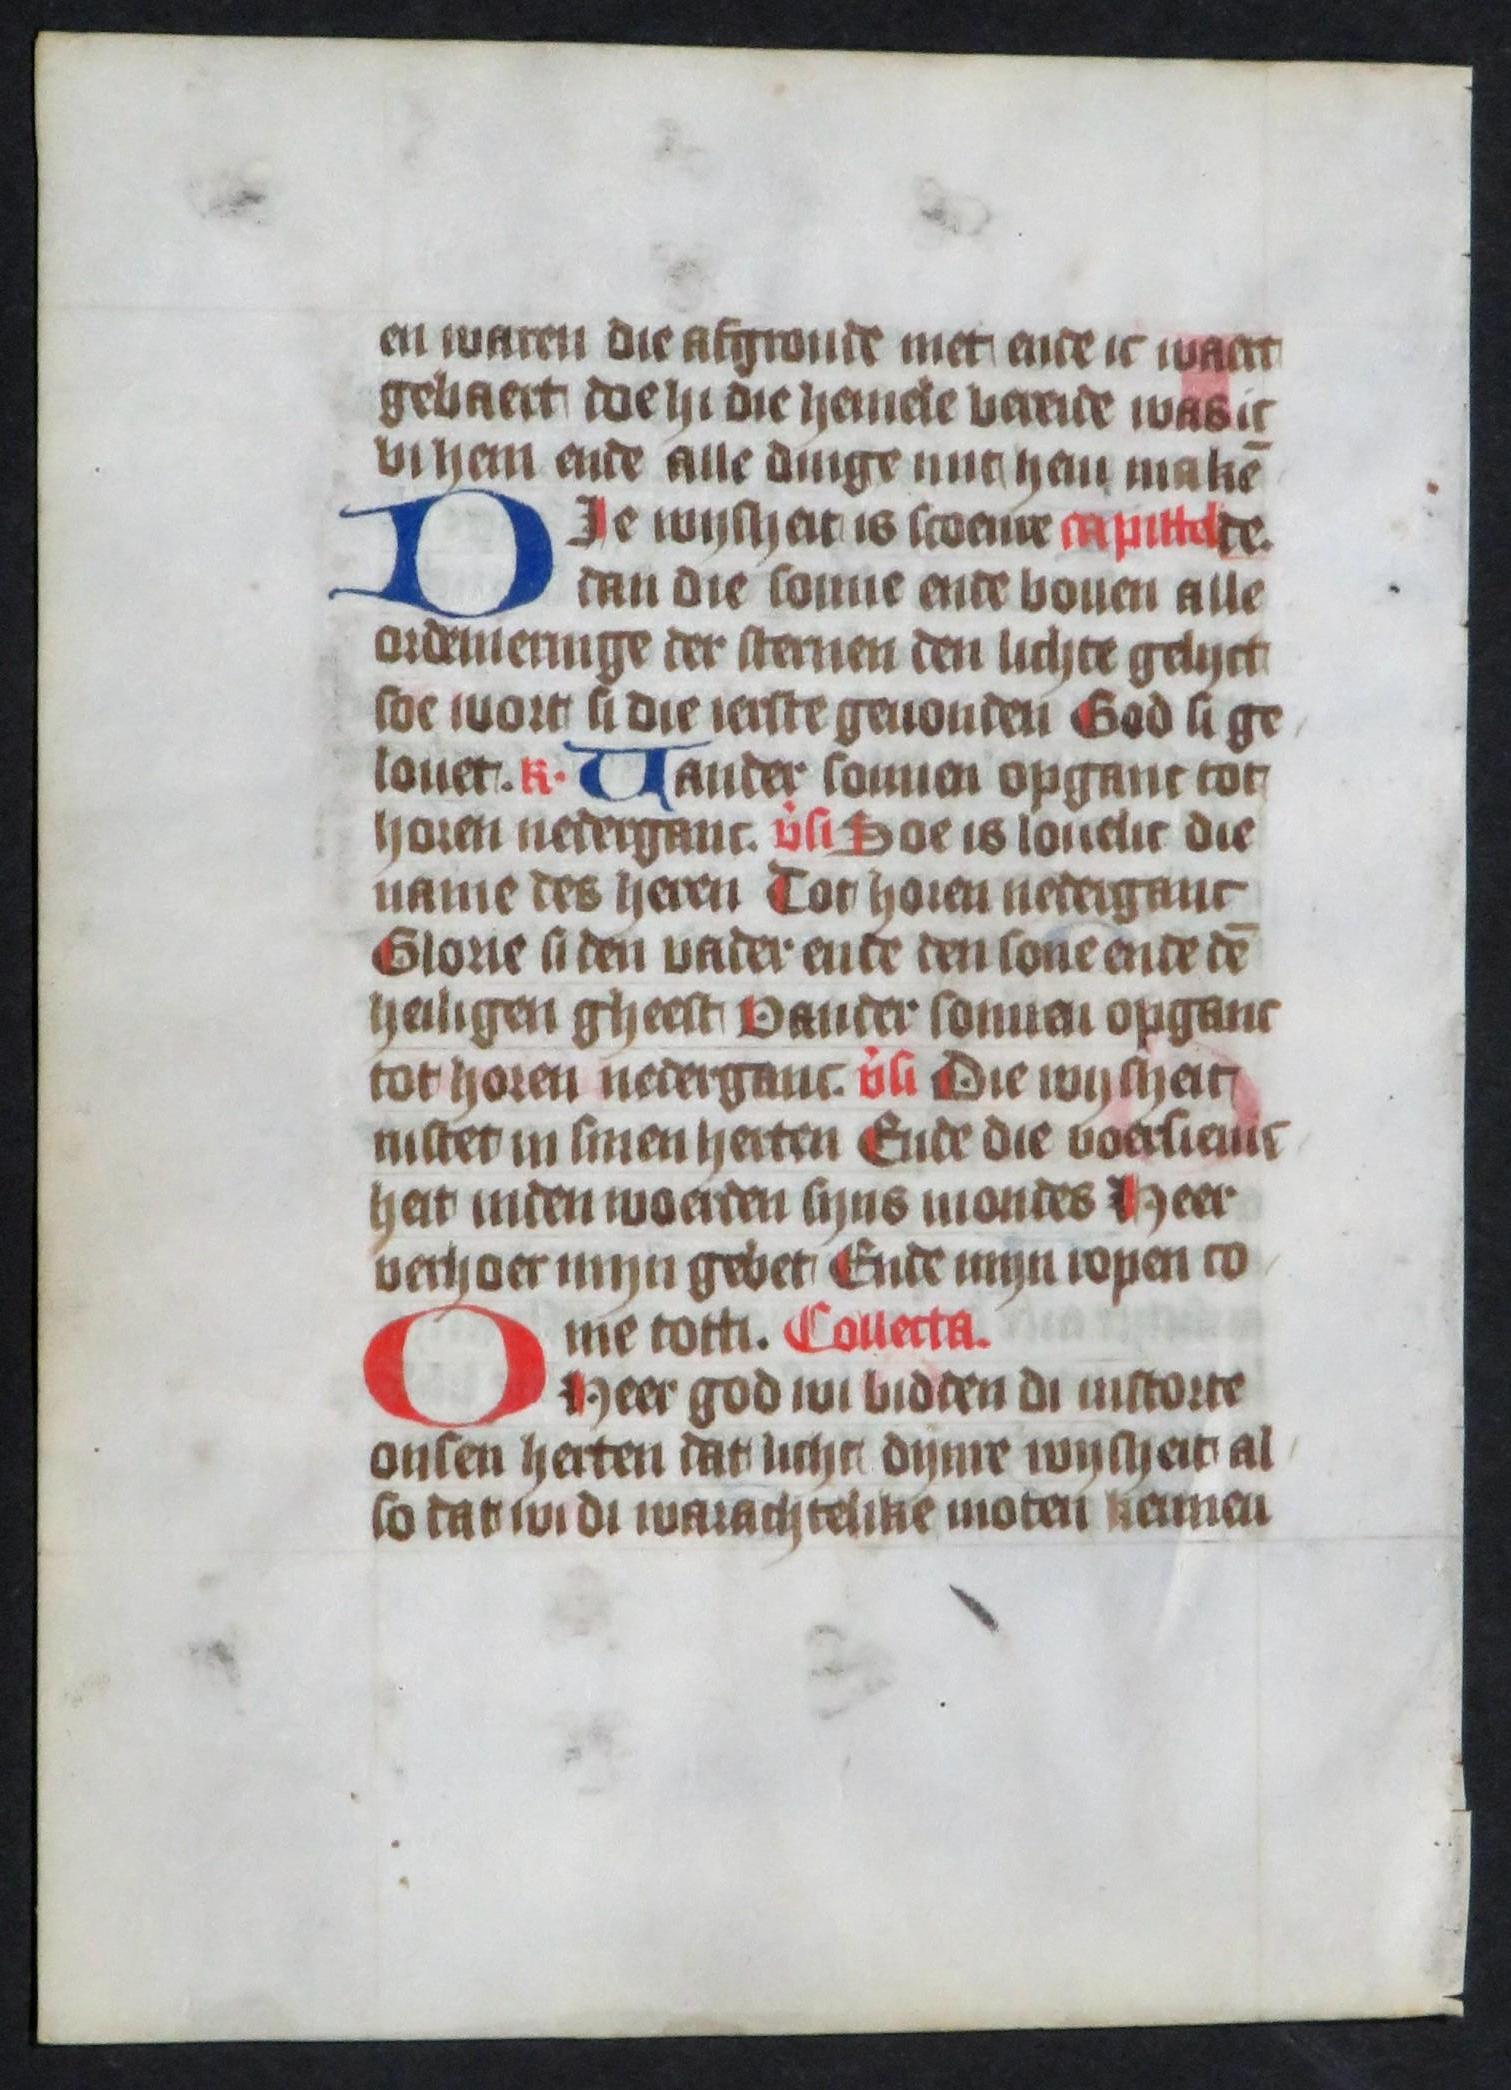 en waren die afgronde niet ende ic waert
gebaert doe hi die hemele bereide was ic
bi hem ende alle dinge mit hem makē
DIe wijsheit is scoenre capittel de.
dan die sonne ende bouen alle
ordenieringe der sternen den lichte gelijct
soe wort si die ierste geuonden God si ge
louet. R. Uander sonnen opganc tot
horen nederganc. v̾si Hoe is louelic die
name des heren Tot horen nederganc
Glorie si den vader ende den sone ende dē
heiligen gheest Vander sonnen opganc
tot horen nederganc. v̾si Die wijsheit
rustet in sinen herten Ende die voersienic
heit inden woerden sijns mondes Heer
verhoer mijn gebet Ende mijn ropen co
me totti. Collecta.
O Heer god wi bidden di instorte
onsen herten dat licht dijnre wijsheit al
so dat wi di warachtelike moten kennen